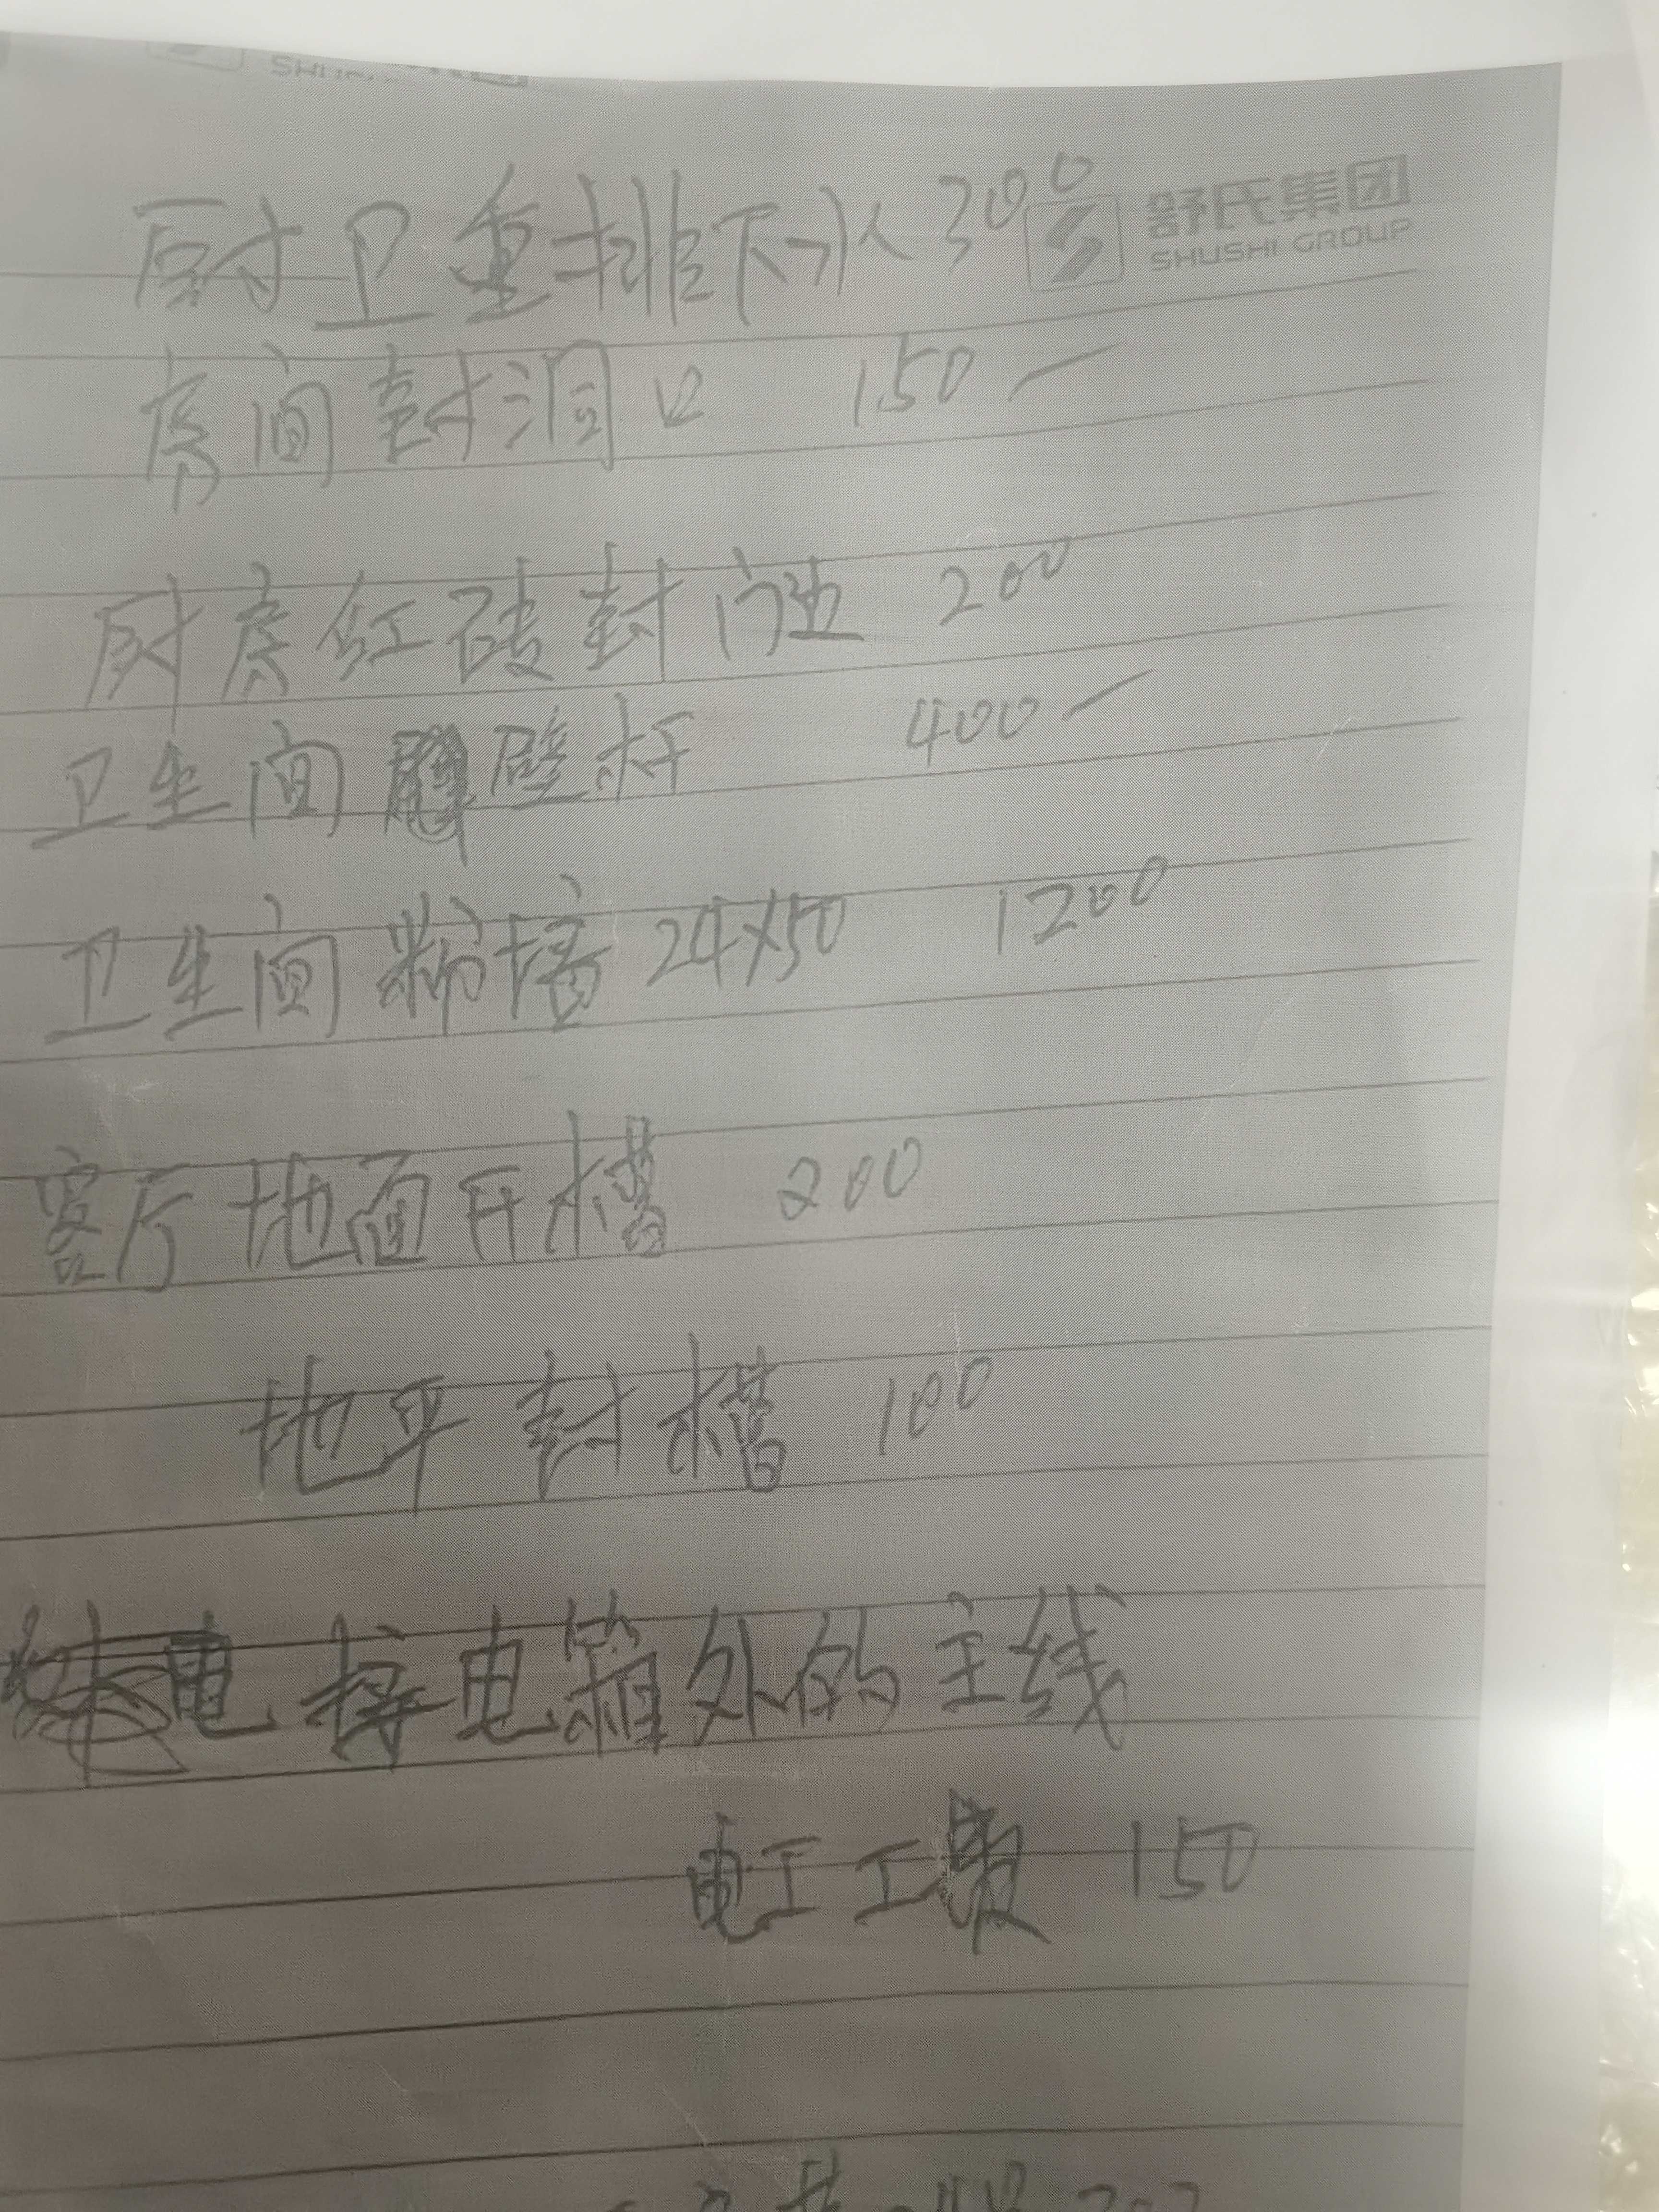 SHUSHI
厨卫重排下水 300
舒氏集团
SHUSHI GROUP
房间封洞口 150
厨房红砖封门边 200
卫生间壁柝 400
卫生间粉墙 24×50 1200
客厅地面开槽 200
地平封槽 100
电接电箱外的主线
电工工费 150